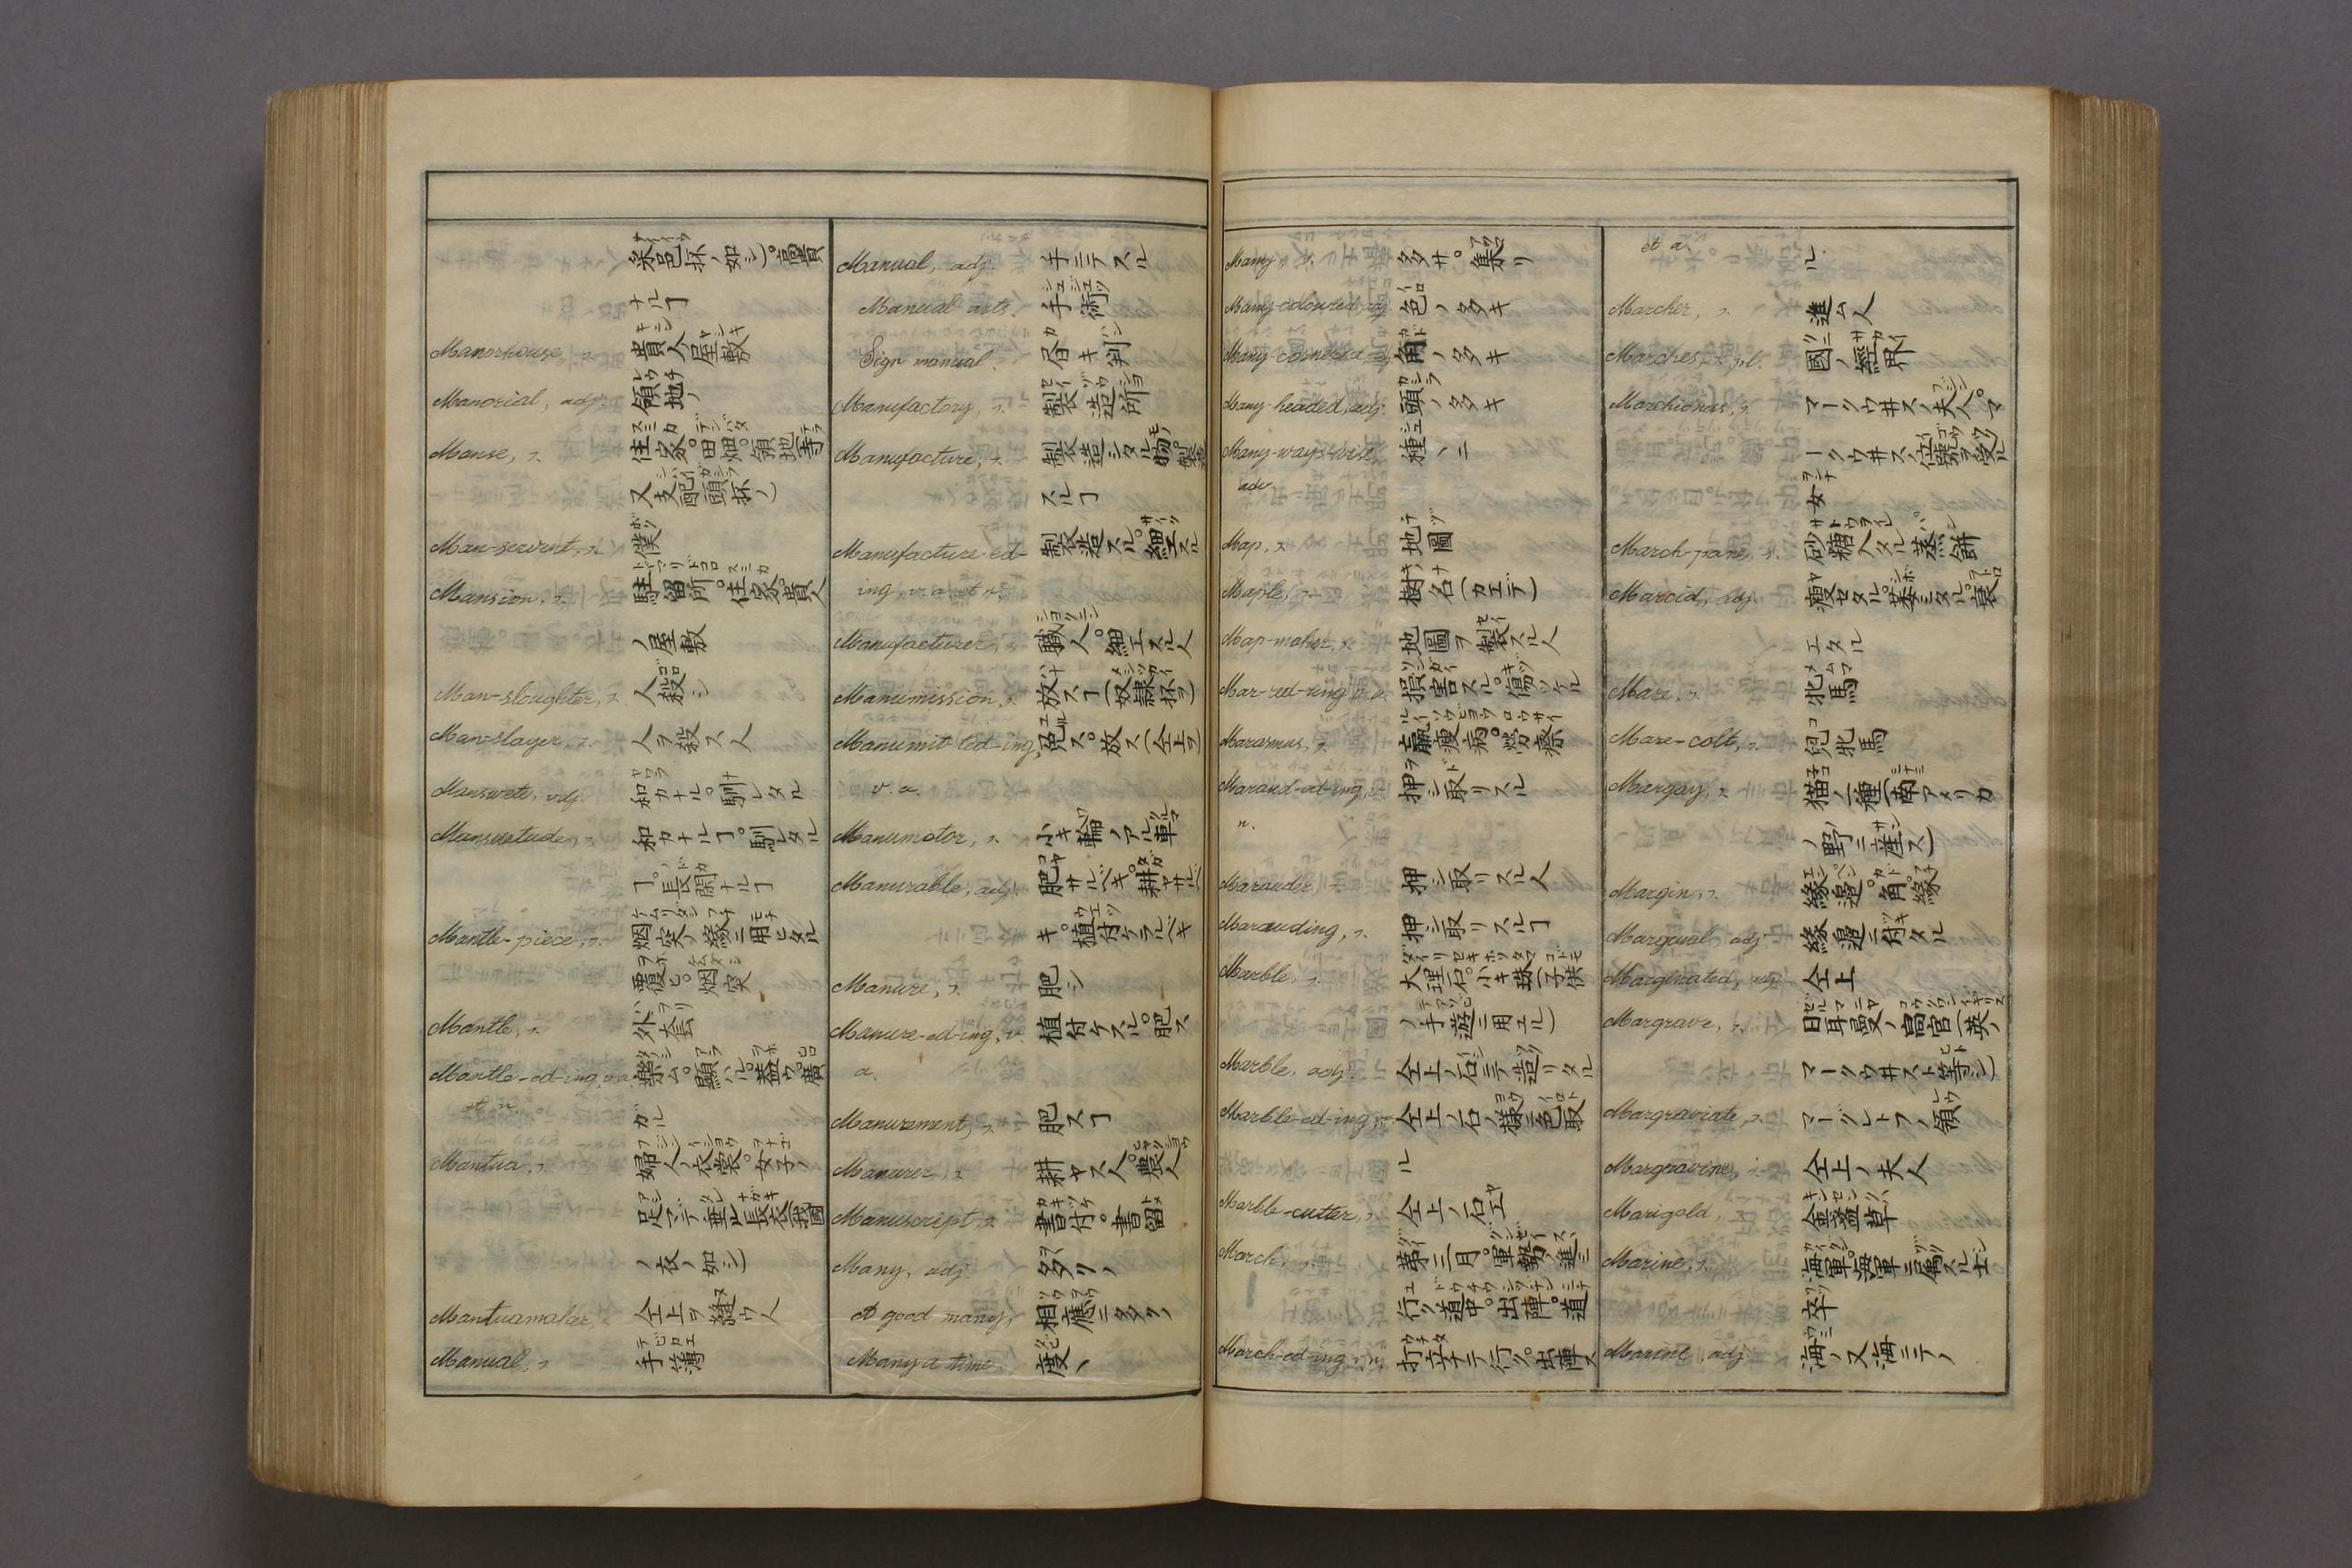 采邑抔ノ如シ)。高貴
ナルヿ
Manorhouse, n. 貴人ノ屋敷
Manorial, adj. 領地ノ
Manse, n. 住家。田畑。領地寺
又支配頭抔ノ)
Man-servant, n. 僕
Mansion, n. 駐留所。住家。貴人
ノ屋敷
Man-slaughter, n. 人殺シ
Man-slayer, n. 人ヲ殺ス人
Mansuete, adj. 和カナル。馴レタル
Mansuetude, n. 和カナルヿ。馴レタル
ヿ。長閑ナルヿ
Mantle-piece, n. 烟突ノ縁ニ用ヒタル
覆ヒ。烟突
Mantle, n. 外套
Mantle-ed-ing, v.a. 樂ム。顯ハル。蓋ウ。廣
et n. ガル
Mantua, n. 婦人ノ衣裳。女子ノ
足マデ垂ル長衣(我國
ノ衣ノ如シ)
Mantuamaker, n. 仝上ヲ縫ウ人
Manual, n. 手簿
Manual, adj. 手ニテスル
Manual arts. 手術
Sign manual. 居キ判
Manufactory, n. 製造所
Manufacture, n. 製造シタル物。製造
スルヿ
Manufacture-ed- 製造スル。細工スル
ing, v.a. et n.
Manufacturer, n. 職人。細工スル人
Manumission, n. 放スヿ(奴隷抔ヲ)
Manumit-ted-ing, 免ス。放ス(仝上ヲ)
v. a.
Manumotor, n. 小キ輪ノアル車
Manurable, adj. 肥サルベキ。耕ヤサルベ
キ。植付ケラルベキ
Manure, n. 肥シ
Manure-ed-ing, v. 植付ケスル。肥ス
a.
Manurement, n. 肥スヿ
Manurer, n. 耕ヤス人。農人
Manuscript, n. 書付。書留
Many, adj. 多クノ
A good many, 相應ニ多クノ
Many a time 度々
Many, n. 多サ。集リ
Many-coloured, adj. 色ノ多キ
Many-cornered, adj. 角ノ多キ
Many-headed, adj. 頭ノ多キ
Many-ways-wise, 種々ニ
adv.
Map, n. 地圖
Maple, n. 樹ノ名(カエデ)
Map-maker, n. 地圖ヲ製スル人
Mar-red-ring, v.a. 損害スル。傷ツケル
Marasmus, n. 羸瘦病。勞瘵
Maraud-ed-ing, v. 押シ取リスル
n.
Marauder, 押シ取リスル人
Marauding, n. 押シ取リスルヿ
Marble, n. 大理石。小キ球(子供
ノ手遊ニ用ユル)
Marble, adj. 仝上ノ石ニテ造リタル
Marble-ed-ing, v. 仝上ノ石ノ樣ニ色取
ル
Marble-cutter, n. 仝上ノ石工
March, n. 第三月。軍勢ノ進ミ
行ク道中。出陣。道
March-ed-ing, v.n. 打立チテ行ク。出陣ス
et a. ル
Marcher, n. 進ム人
Marches, n. pl. 國ノ經界
Marchioness, n. マークウ井スノ夫人。マ
ークウ井スノ位號ヲ受ル
女
March-pane, n. 砂糖入タル蒸餅
Marcid, adj. 瘦セタル。萎ミタル。衰
エタル
Mare, n. 牝馬
Mare-colt, n. 兒牝馬
Margay, n. 猫ノ一種(南アメリカ
ノ野ニ産ス)
Margin, n. 緣邊。角。緣
Marginal, adj. 緣邊ニ付タル
Marginated, adj. 仝上
Margrave, n. 日耳曼ノ高官(英ノ
マークウ井スト等シ)
Margraviate, n. マーグレーフノ領
Margravine, n. 仝上ノ夫人
Marigold, 金盞草
Marine, n. 海軍。海軍ニ屬スル士
卒
Marine, adj. 海ノ。又海ニテノ